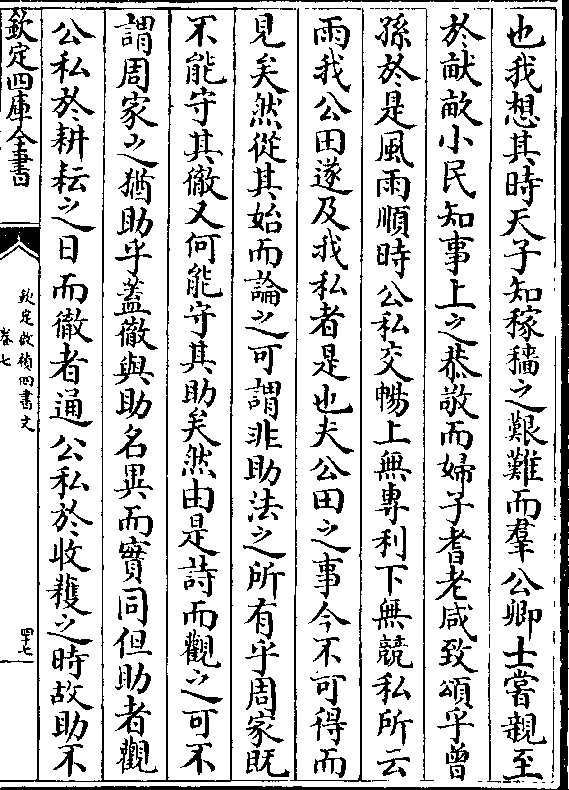 也我想其時天子知稼穡之艱難而羣公卿士嘗親至
於畎畝小民知事上之恭敬而婦子耆老咸致頌乎曾
孫於是風雨順時公私交暢上無專利下無競私所云
雨我公田遂及我私者是也夫公田之事今不可得而
見矣然從其始而論之可謂非助法之所有乎周家既
不能守其徹又何能守其助矣然由是詩而觀之可不
謂周家之猶助乎蓋徹與助名異而實同但助者觀
公私於耕耘之日而徹者通公私於收穫之時故助不
欽定四庫全書
欽定啟禎四書文
卷七
四十七